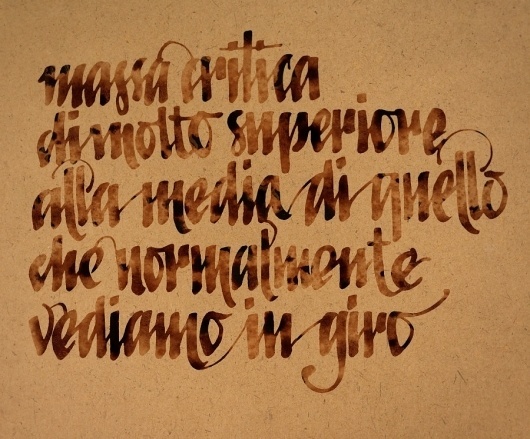 massa critica
di molto superiore
alla media di quello
che normalmente
vediamo in giro